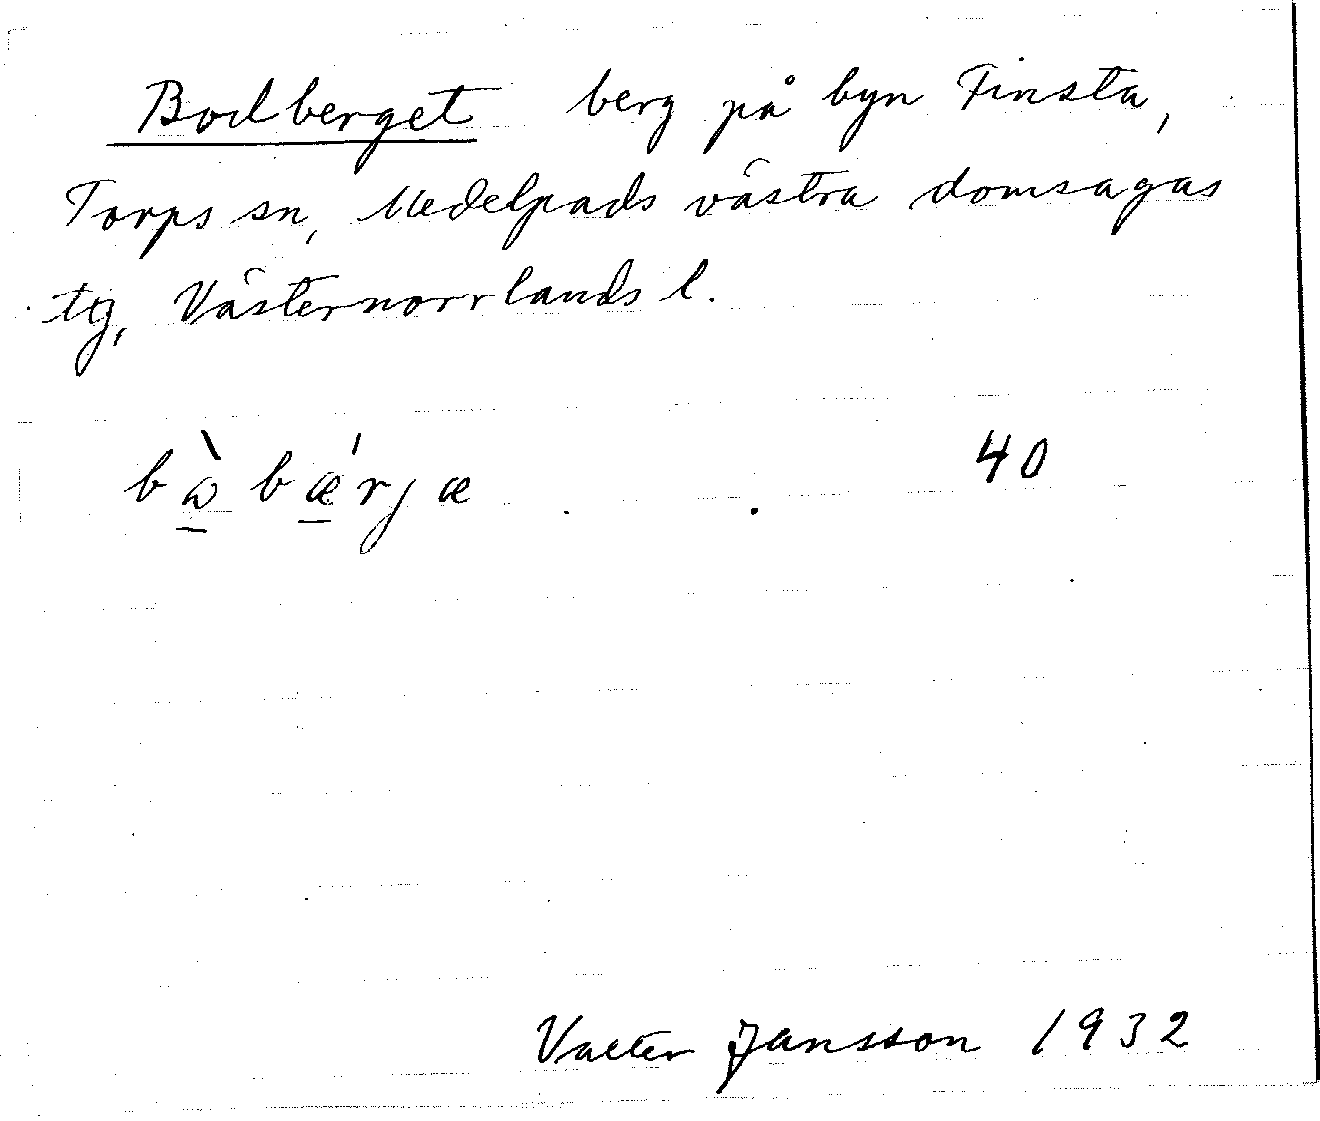 Bodberget berg på byn Finsta,
Torps sn, Medelpads västra domsagas
tg, Västernorrlands l.
bὼ̲bǽ̲rjæ 40
Valter Jansson 1932